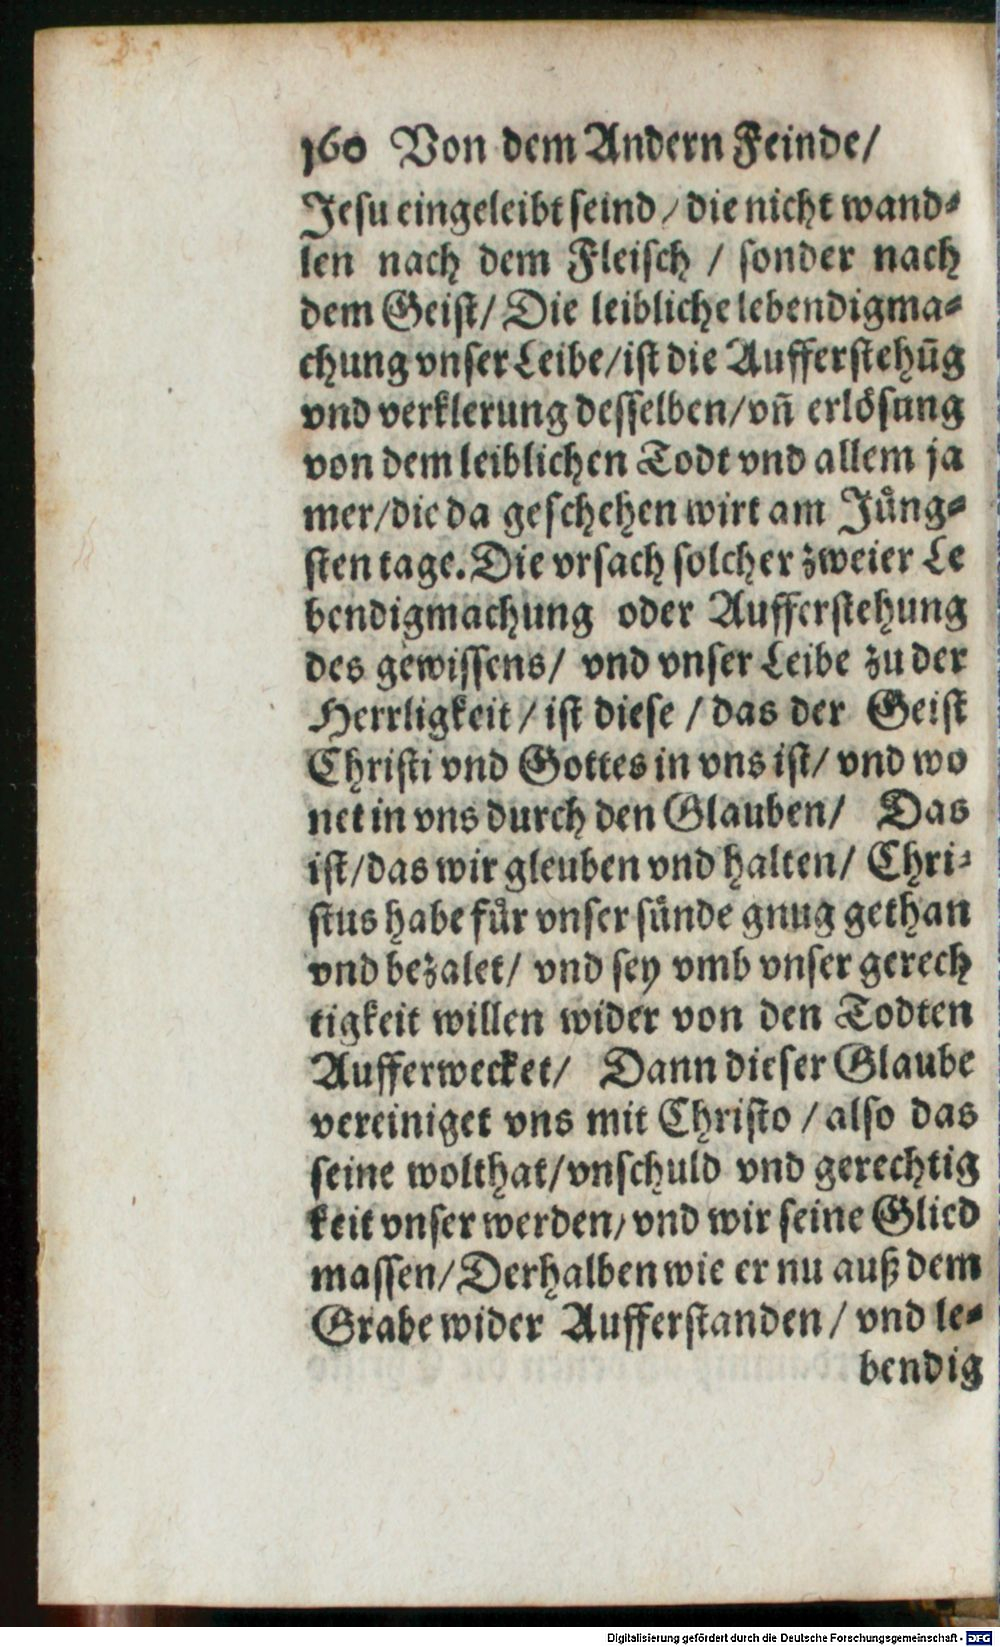 160 Von dem Andern Feinde/
Jesu eingeleibt seind/ die nicht wand⸗
len nach dem Fleisch / sonder nach
dem Geist/ Die leibliche lebendigma⸗
chung vnser Leibe/ist die Aufferstehūg
vnd verklerung desselben/vn̄ erlösung
von dem leiblichen Todt vnd allem ja
mer/die da geschehen wirt am Jüng⸗
sten tage. Die vrsach solcher zweier Le
bendigmachung oder Aufferstehung
des gewissens/ vnd vnser Leibe zu der
Herrligkeit / ist diese / das der Geist
Christi vnd Gottes in vns ist/ vnd wo
net in vns durch den Glauben/ Das
ist/das wir gleuben vnd halten/ Chri⸗
stus habe für vnser sünde gnug gethan
vnd bezalet/ vnd sey vmb vnser gerech
tigkeit willen wider von den Todten
Aufferwecket/ Dann dieser Glaube
vereiniget vns mit Christo / also das
seine wolthat/vnschuld vnd gerechtig
keit vnser werden/ vnd wir seine Glied
massen/Derhalben wie er nu auß dem
Grabe wider Aufferstanden / vnd le⸗
bendig
Digitalisierung gefördert durch die Deutsche Forschungsgemeinschaft - DFG